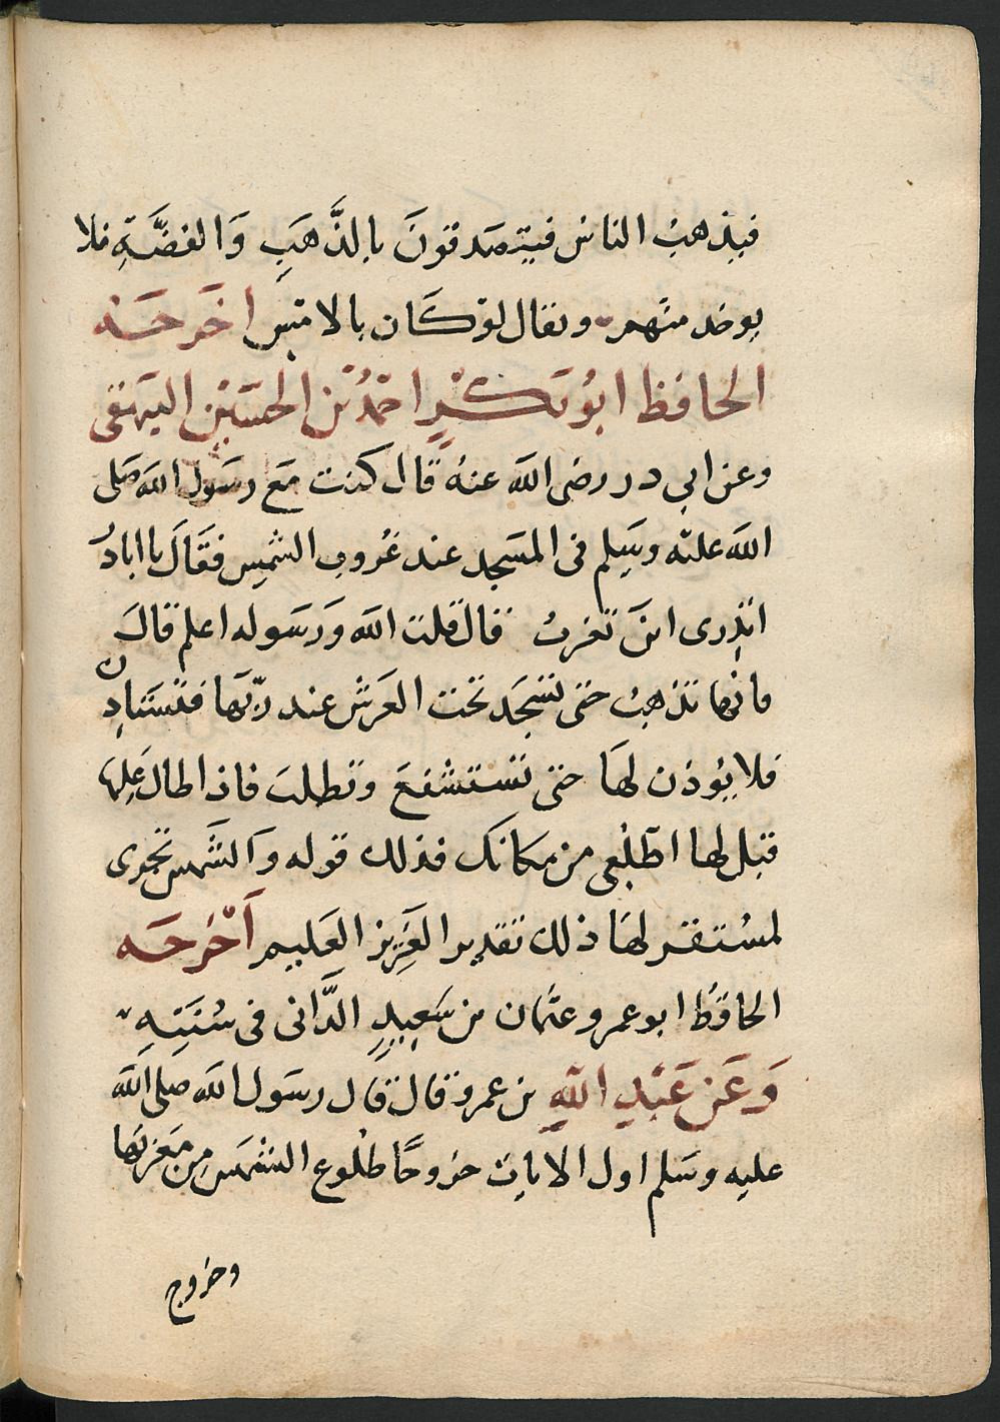 فيذهب الناس فيتصدقونَ بالذَّهَبِ وَالفضَّةِ فلا
يوخد منهم ويقال لوكَان بالامس اخَرجَه
الحافظ ابُو بَكْرٍ احمدُ بن الحسَين البيهقى
وعن ابي در رضى الله عنهُ قال كنت مَع رسَول الله صَلى
الله عليه وسَلم فى المسَجد عند غُروب الشمس فقَالَ يا ابا دُ
اتدرى اينَ تغربُ قال قلت الله وَرسَوله اعلم قالَ
فانها تذهبُ حتى تسجد تحت العَرش عند ربّها فتسَتاذن
فلا يوذن لهَا حتى تستشفعَ وتطلبَ فاذا طال عَليها
قيل لها اطلعى من مكانك فذلك قوله وَالشمس تجرى
لمسُتقر لهَا ذلك تقدير العَزيز العَليم اَخْرجَه
الحافظُ ابو عمرو عثمان بن سَعِيدٍ الدَّانى فى سُننِهِ
وَعَن عَبْدِ اللهِ بن عمرو قال قال رسَول الله صلى الله
عليه وسَلم اول الايات خروجًا طلوع الشمسَ من مَغربها
وخروج